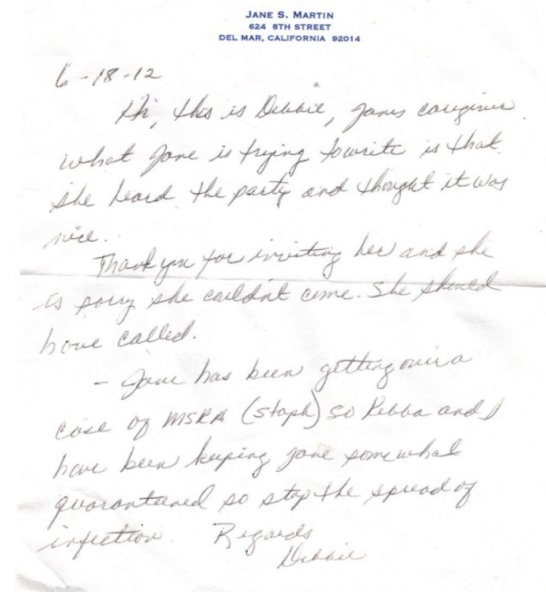 JANE S. MARTIN
624 8TH STREET
DEL MAR, CALIFORNIA 92014
6-18-12
Hi, this is Debbie, Janes caregiver.
what Jane is trying to write is that
she heard the party and thought it was
nice.
Thank you for inviting her and she
is sorry she couldn't come. She should
have called.
- Jane has been getting over a
case of MSRA (staph) so Rebba and I
have been keeping Jane somewhat
quarantuned so stop the spread of
infection. Regards
Debbie